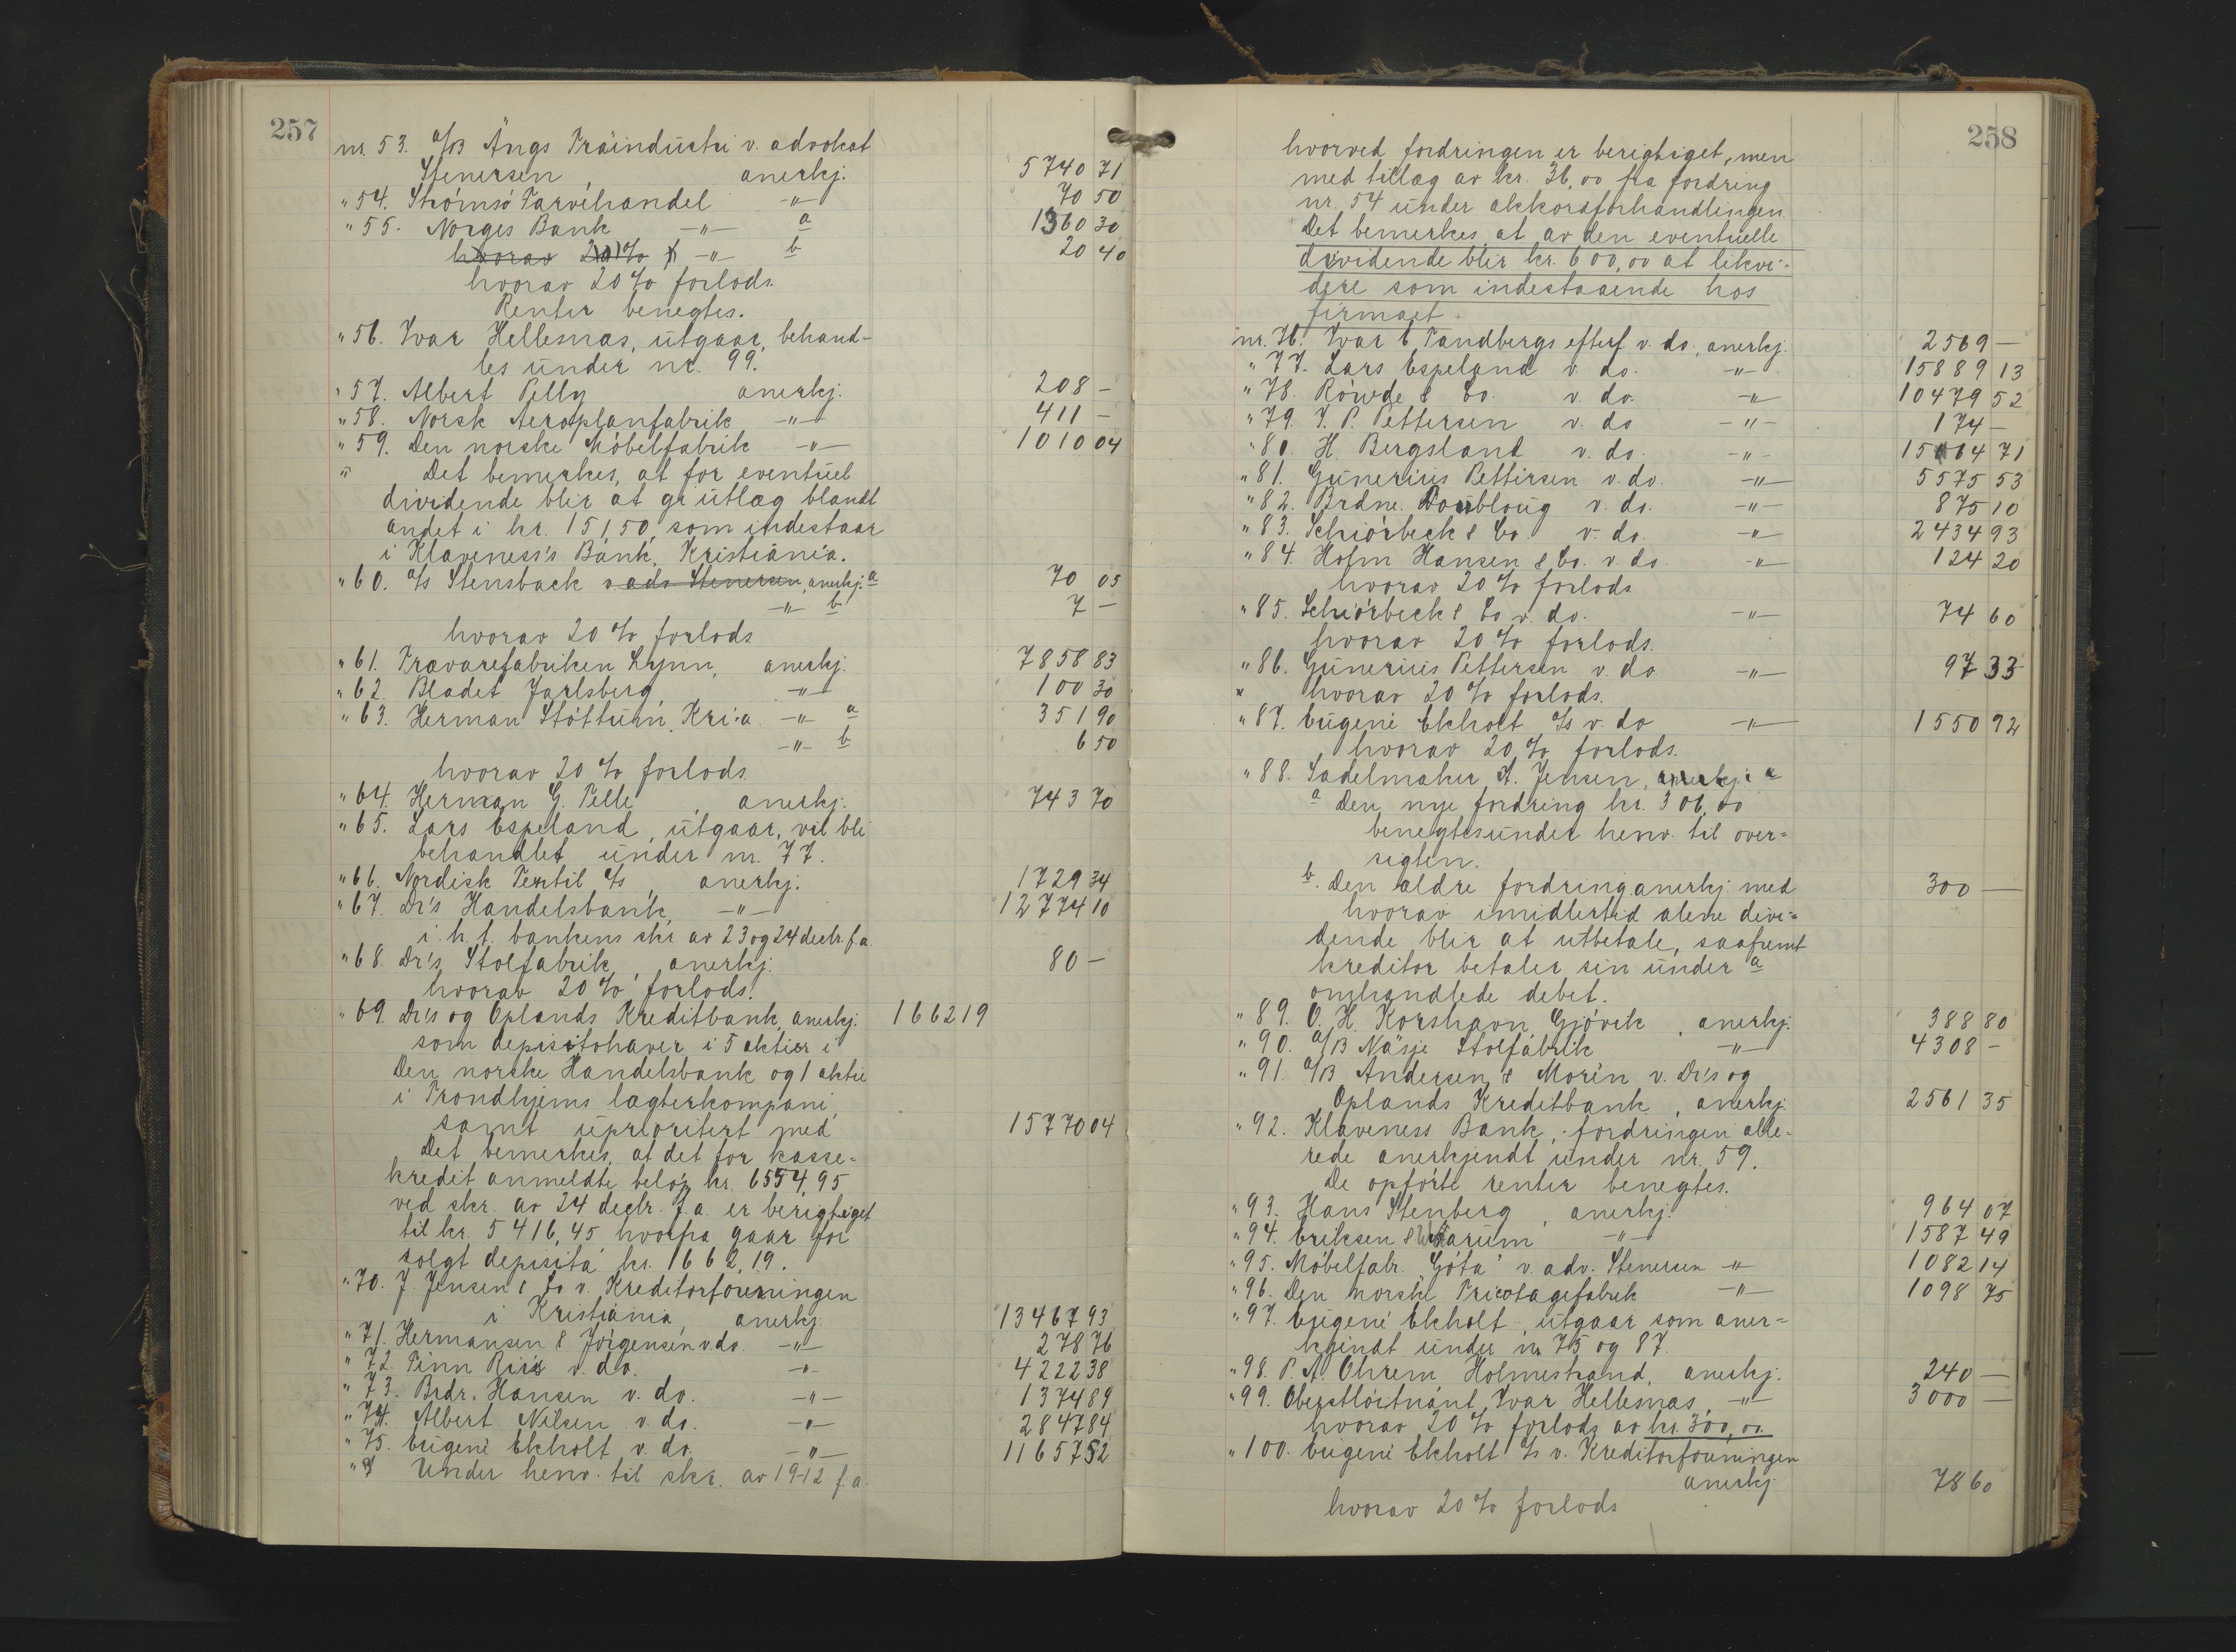 257
nr. 53. a/B Ängs Träindustri v. advokat
Stenersen, anerkj. 5740 71
" 54. Strömsö Farvehandel -"- 70 50
" 55. Norges Bank -"- a 1360 30
hvorav 20% f -"- b 20 40
hvorav 20% forlods.
Renter benegtes.
" 56. Ivar Hellesnas, utgaar, behand-
les under nr. 99.
" 57. Albert Pelly anerkj. 208 -
" 58. Norsk Aeroplanfabrik -"- 411 -
" 59. Den norske Möbelfabrik -"- 1010 04
" Det bemerkes, at for eventuel
dividende blir at gi utlæg blandt
andet i kr. 151,50, som indestaar
i Klaveness's Bank, Kristiania.
" 60. a/s Stensback v. adv. Stenersen, anerkj. a 70 05
-"- b 7 -
hvorav 20% forlods
" 61. Trævarefabriken Lynn, anerkj. 7858 83
" 62. Bladet Jarlsberg, -"- 100 30
" 63. Herman Stöttum, Kri:a. -"- a 351 90
-"- b 6 50
hvorav 20% forlods
" 64. Herman G. Pelle, anerkj. 743 70
" 65. Lars Espeland, utgaar, vil bli
behandlet under nr. 77.
" 66. Nordisk Textil a/s, anerkj. 1729 34
" 67. Dr's Handelsbank, -"- 12774 10
i. h. t. bankens skr av 23 og 24 decbr. f.a.
" 68. Dr's Stolfabrik, anerkj. 80 -
hvorav 20% forlods.
" 69. Dr's og Oplands Kreditbank, anerkj. 1662 19
som depisitohaver i 5 aktier i
Den norske Handelsbank og 1 aktie
i Trondhjems lagterkompani,
samt uprioritert med 15770 04
Det bemerkes, at det for kasse-
kredit anmeldte beløp kr. 6554,95
ved skr. av 24 decbr. f.a. er berigtiget
til kr. 5416,45 hvorfra gaar for
solgt depisita kr. 1662,19.
" 70. J. Jensen & Co v. Kreditorforeningen
i Kristiania, anerkj. 13467 93
" 71. Hermansen & Jörgensen v. do. -"- 278 76
" 72. Finn Riis v. do. -"- 4222 38
" 73. Brdr. Hansen v. do. -"- 1374 89
" 74. Albert Nilsen v. do. -"- 2847 84
" 75. Eugene Ekholt v. do. -"- 11657 52
" Under henv. til skr. av 19-12 f.a.
258
hvorved fordringen er berigtiget, men
med tillæg av kr. 36,00 fra fordring
nr. 54 under akkordforhandlingen.
Det bemerkes at av den eventuelle
dividende blir kr. 600,00 at likvi-
dere som indestaaende hos
firmaet.
nr. 76. Ivar C. Tandbergs efterf v. do., anerkj. 2569 -
" 77. Lars Espeland v. do. -"- 15889 13
" 78. Röwde & Co. v. do. -"- 10479 52
" 79. J. P. Pettersen v. do -"- 174 -
" 80. H. Bergsland v. do. -"- 15 64 71
" 81. Gunerius Pettersen v. do. -"- 5575 53
" 82. Brdne. Doubloug v. do. -"- 875 10
" 83. Schiörbeck & Co. v. do. -"- 2434 93
" 84. Holm Hansen & Co. v. do. -"- 124 20
hvorav 20% forlods
" 85. Schiörbeck & Co v. do. -"- 74 60
hvorav 20% forlods.
" 86. Gunerius Pettersen v. do -"- 97 33
" hvorav 20% forlods.
" 87. Eugene Ekholt a/s v. do -"- 1550 92
hvorav 20% forlods.
" 88. Sadelmaker H. Jensen, anerkj: a
a Den nye fordring kr. 306,00
benegtes under henv. til over-
sigten.
b. Den ældre fordring anerkj. med 300 -
hvorav imidlertid alene divi-
dende blir at utbetale, saafremt
kreditor betaler sin under a
omhandlede debet.
" 89. O. H. Korshavn, Gjövik, anerkj. 388 80
" 90. a/B Näsje Stolfabrik -"- 4308 -
" 91. a/B Andersen & Morin v. Dr's og
Oplands Kreditbank, anerkj. 2561 35
" 92. Klaveness Bank, fordringen alle-
rede anerkjendt under nr. 59.
De opförte renter benegtes.
" 93. Hans Stenberg, anerkj. 964 07
" 94. Eriksen & -"- 1587 49
" 95. Möbelfabr. "Göta" v. adv. Stenersen -"- 1082 14
" 96. Den norske Tricotagefabrik -"- 1098 75
" 97. Eugene Ekholt, utgaar som aner-
kjendt under nr 75 og 87.
" 98. P. A. Ohrem, Holmestrand, anerkj. 240 -
" 99. Oberstlöitnant Ivar Hellesnas, -"- 3000 -
hvorav 20% forlods av kr. 300,00.
" 100. Eugene Ekholt a/s v. Kreditorforeningen
anerkj. 78 60
hvorav 20% forlods